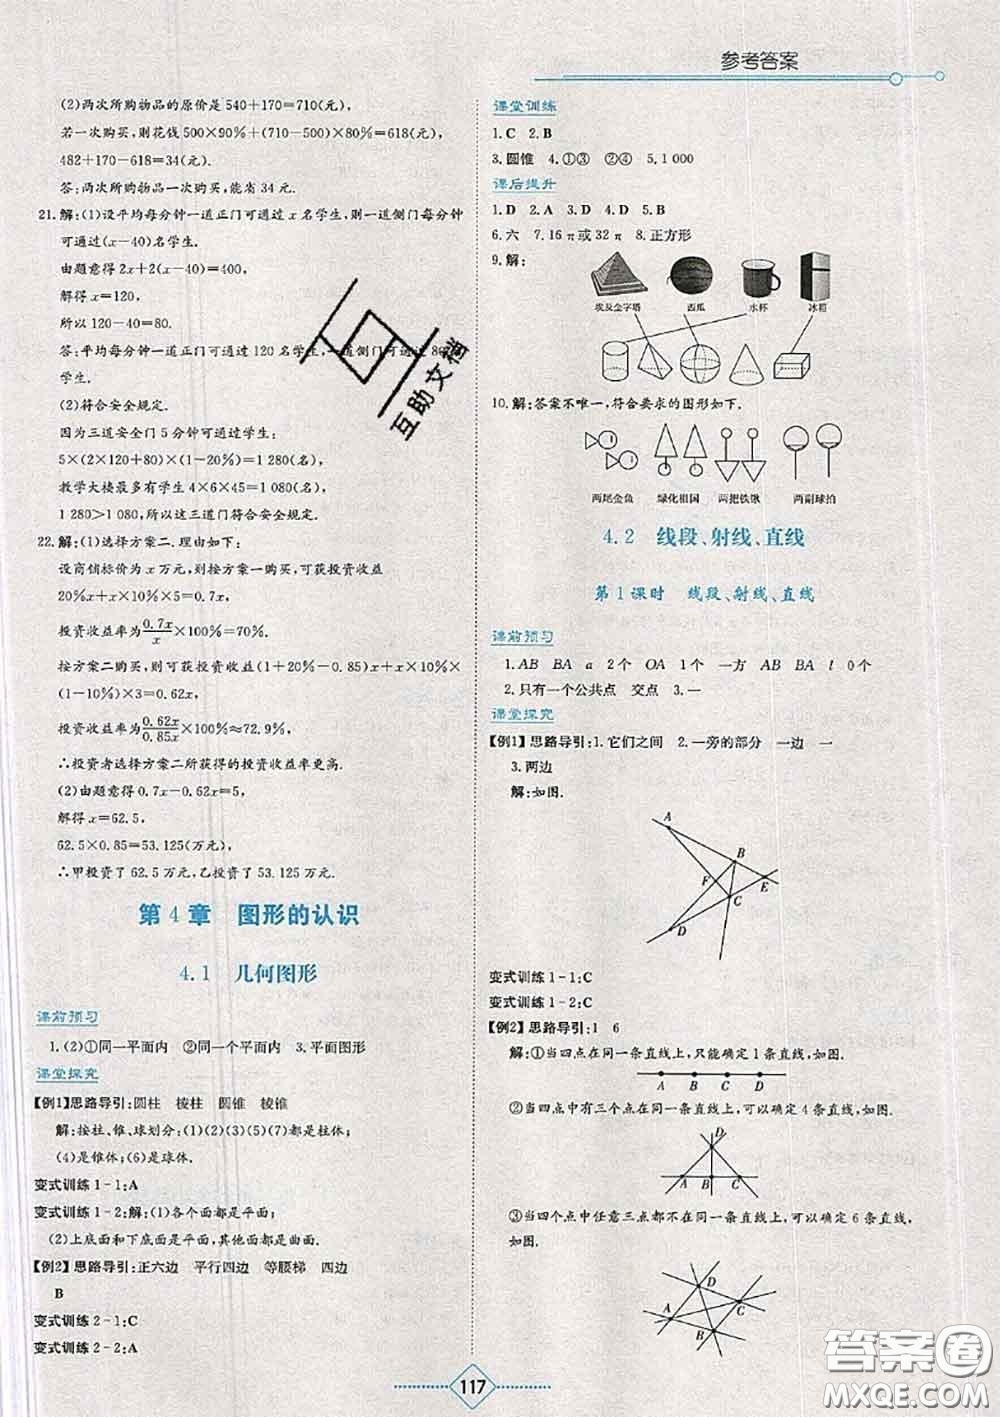 参考答案
(2)两次所购物品的原价是540+170=710(元),
若一次购买,则花钱500×90%+(710-500)×80%=618(元),
482+170-618=34(元).
答:两次所购物品一次购买,能省34元.
21.解:(1)设平均每分钟一道正门可通过x名学生,则一道侧门每分钟
可通过(x-40)名学生.
由题意得2x+2(x-40)=400,
解得x=120,
所以120-40=80.
答:平均每分钟一道正门可通过120名学生,一道侧门可通过80名
学生.
(2)符合安全规定.
因为三道安全门5分钟可通过学生:
5×(2×120+80)×(1-20%)=1 280(名),
教学大楼最多有学生4×6×45=1 080(名),
1 280>1 080,所以这三道门符合安全规定.
22.解:(1)选择方案二.理由如下:
设商铺标价为x万元,则按方案一购买,可获投资收益
20%x+x×10%×5=0.7x,
投资收益率为0.7x/x×100%=70%.
按方案二购买,则可获投资收益(1+20%-0.85)x+x×10%×
(1-10%)×3=0.62x,
投资收益率为0.62x/0.85x×100%≈72.9%,
∴投资者选择方案二所获得的投资收益率更高.
(2)由题意得0.7x-0.62x=5,
解得x=62.5,
62.5×0.85=53.125(万元),
∴甲投资了62.5万元,乙投资了53.125万元.
第4章 图形的认识
4.1 几何图形
课前预习
1.(2)①同一平面内 ②同一个平面内 3.平面图形
课堂探究
【例1】思路导引:圆柱 棱柱 圆锥 棱锥
解:按柱、锥、球划分:(1)(2)(3)(5)(7)都是柱体;
(4)是锥体;(6)是球体.
变式训练1-1:A
变式训练1-2:解:(1)各个面都是平面;
(2)上底面和下底面是平面,其他面都是曲面.
【例2】思路导引:正六边 平行四边 等腰梯 四边
B
变式训练2-1:C
变式训练2-2:A
课堂训练
1.C 2.B
3.圆锥 4.①③ ②④ 5.1 000
课后提升
1.D 2.A 3.D 4.D 5.B
6.六 7.16π或32π 8.正方形
9.解:
埃及金字塔 西瓜 水杯 冰箱
10.解:答案不唯一,符合要求的图形如下.
两尾金鱼 绿化祖国 两把铁锹 两副球拍
4.2 线段、射线、直线
第1课时 线段、射线、直线
课前预习
1.AB BA a 2个 OA 1个 一方 AB BA l 0个
2.只有一个公共点 交点 3.一
课堂探究
【例1】思路导引:1.它们之间 2.一旁的部分 一边 一
3.两边
解:如图.
A
B
F
E
C
D
变式训练1-1:C
变式训练1-2:C
【例2】思路导引:1 6
解:①当四点在同一条直线上,只能确定1条直线,如图.
A B C D
②当四点中有三个点在同一条直线上,可以确定4条直线,如图.
D
A B C
③当四个点中任意三点都不在同一条直线上,可以确定6条直线,
如图.
D
C
A
B
互助文档
117
答案圈
MXQE.COM